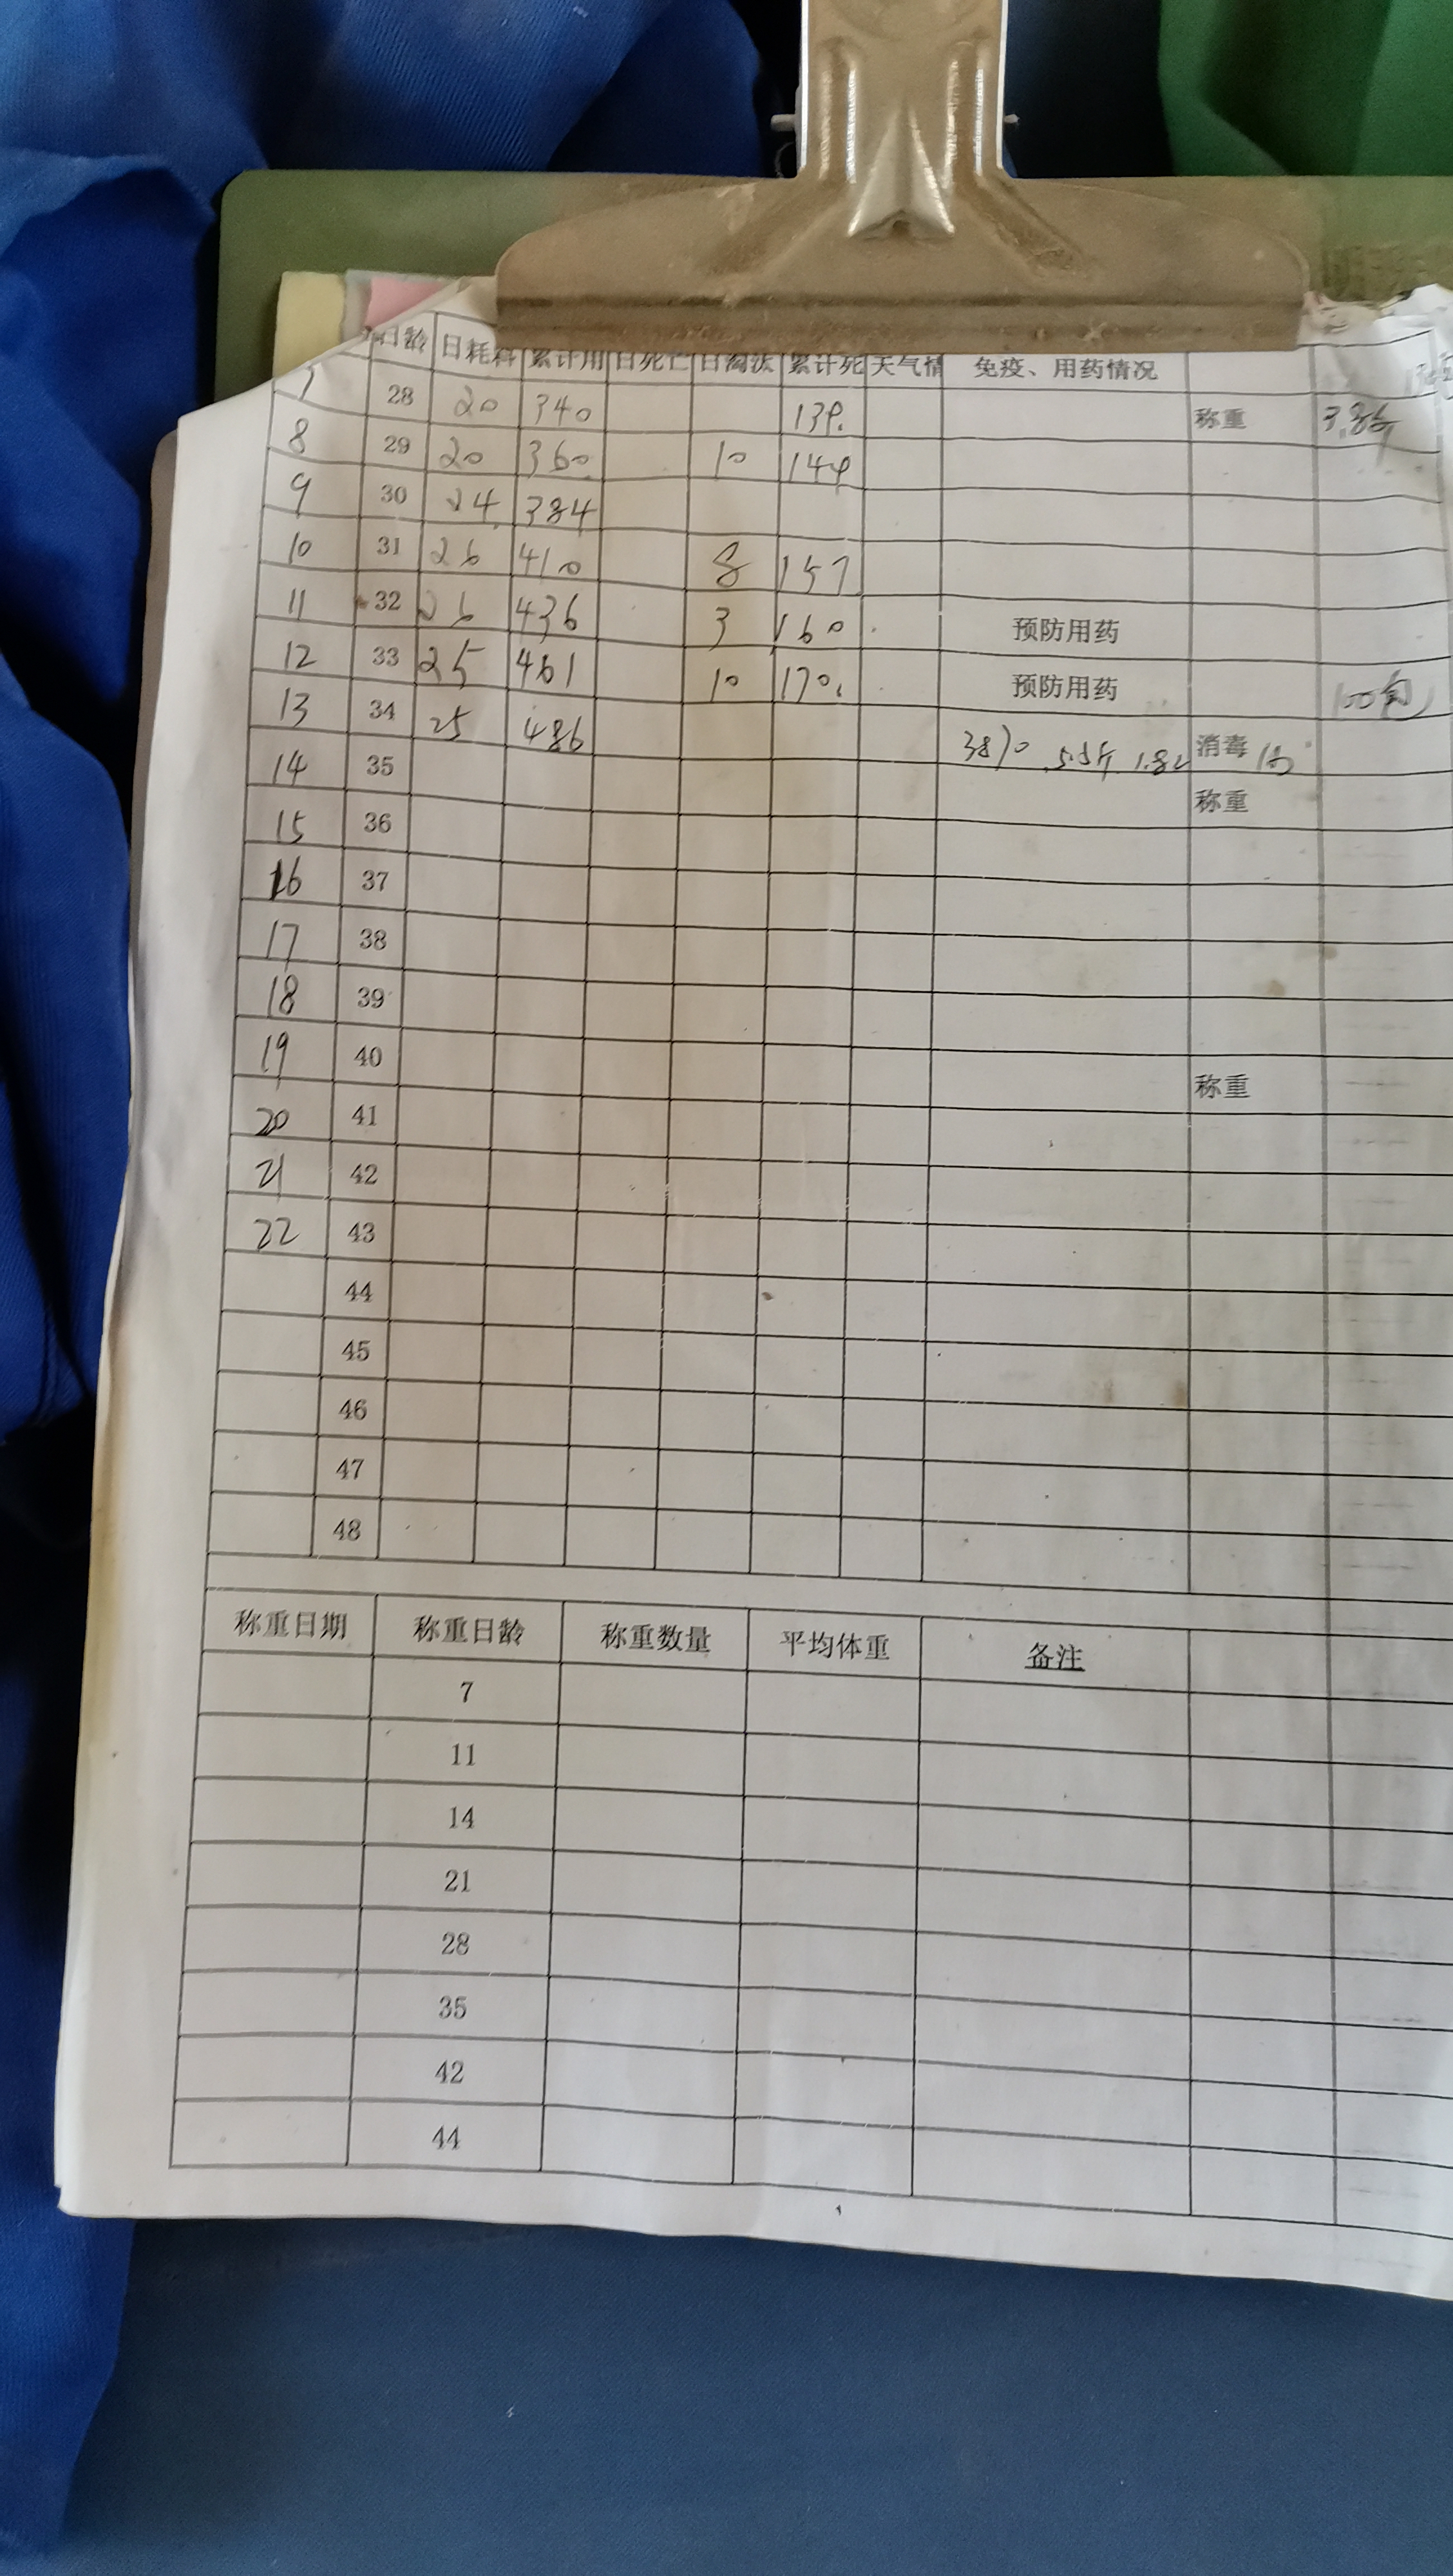 日龄 日耗料 累计用 日死亡 日淘汰 累计死 天气情 免疫、用药情况
7 28 20 340 139. 称重
8 29 20 360. 10 149
9 30 24 384
10 31 26 410 8 157
11 32 26 436 3 160 预防用药
12 33 25 461 10 170. 预防用药
13 34 25 486 消毒
14 35 称重
15 36
16 37
17 38
18 39
19 40 称重
20 41
21 42
22 43
44
45
46
47
48
称重日期 称重日龄 称重数量 平均体重 备注
7
11
14
21
28
35
42
44